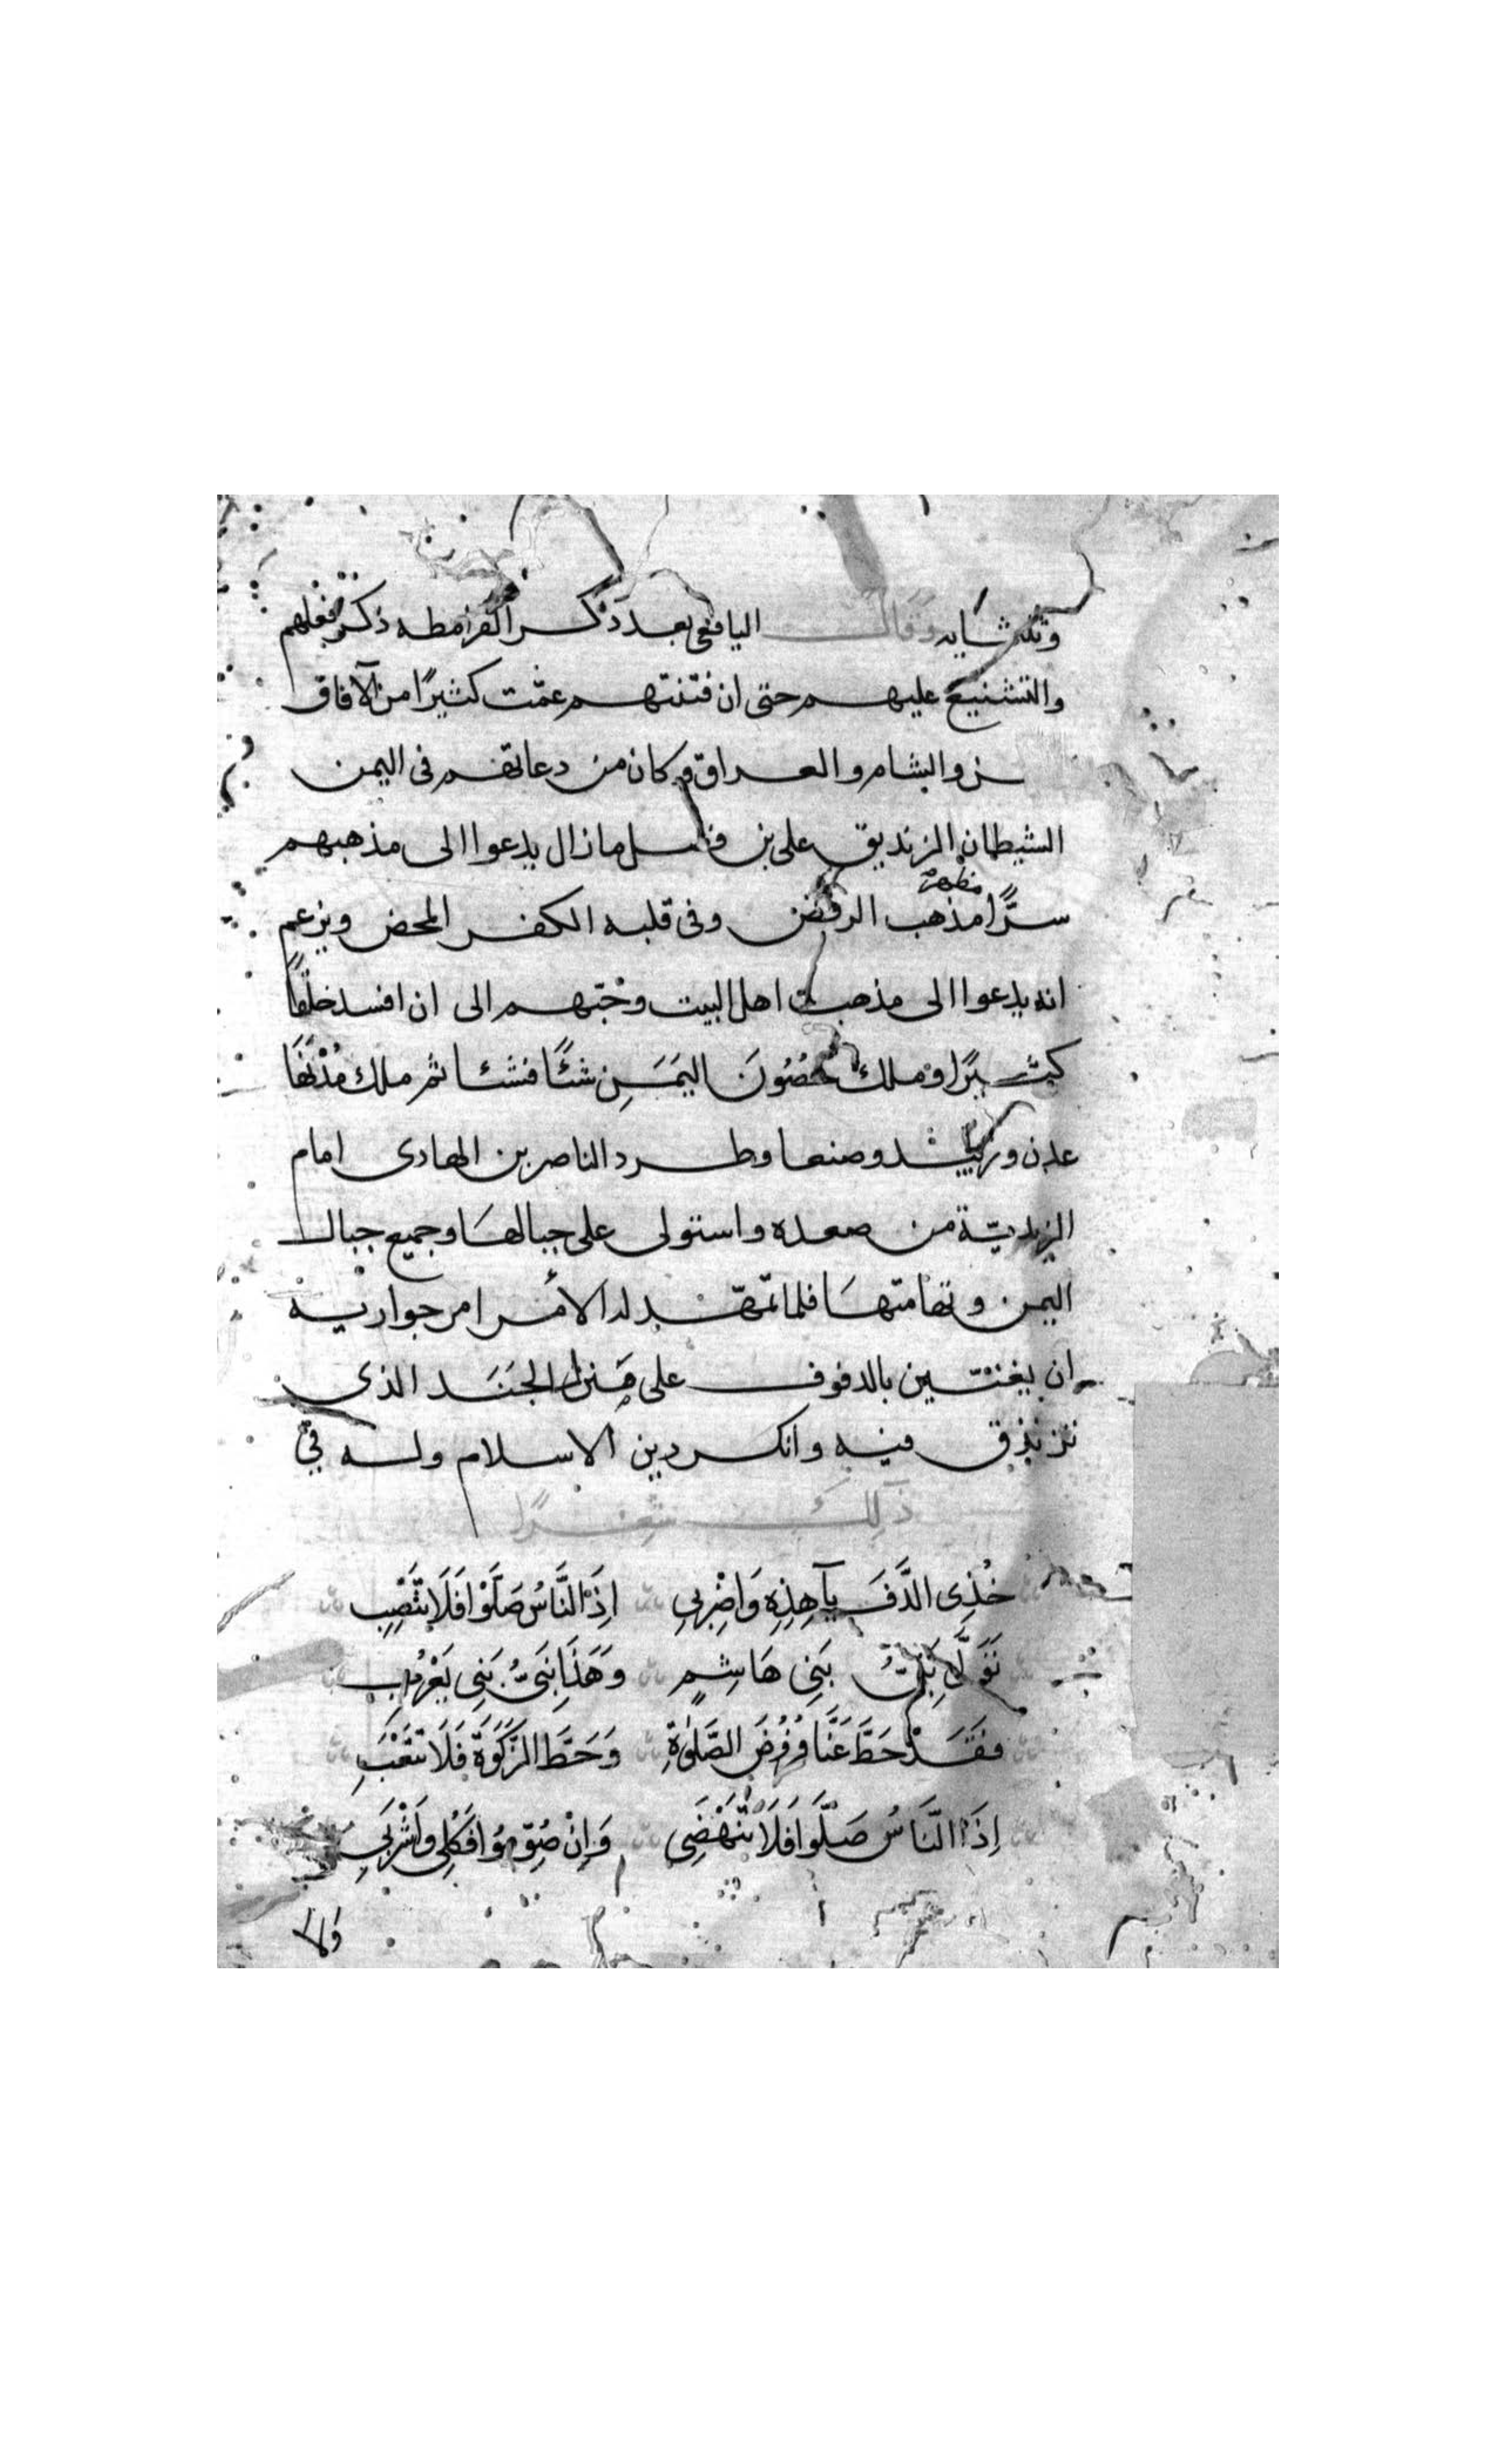 وثلثمايه وقال اليافعى بعد ذكر القرامطه ذكر فعلهم
والتشنيع عليهم حتى ان فتنتهم عمّت كثيرًا من الآفاق
والشام والعراق وكان من دعاتهم فى اليمن
الشيطان الزنديق على بن فضل مازال يدعوا الى مذهبهم
مظهرا
سرًّا مذهب الرفض وفى قلبه الكفر المحض ويزعم
انه يدعوا الى مذهب اهل البيت وحبّهم الى ان افسد خلقًا
كثيرًا وملك حُصُونَ اليَمَنِ شئًا فشئا ثم ملك مُدْنَهَا
عدن وزبيد وصنعا وطرد الناصر بن الهادى امام
الزيديّة من صعده واستولى على جبالهَا وجميع جبال
اليمن وتهامتهَا فلما تمهّد له الأمر امر جواريه
ان يغنّين بالدفوف على منبر الجَنَد الذى
تزندق فيه وانكر دين الاسلام وله فى
ذلِكَ شِعْرًا
خُذِى الدَّفَ يآهذِهِ وَاضْرِبِى اِذَا النَّاسُ صَلَّوْا فَلَا تنْصِبِ
تَوَلَّى نَبِىُّ بَنِى هَاشِمٍ وَهَذَا نَبِىُّ بَنِى يَعْرُبِ
فَقَدْ حَطَّ عَنَّا فُرُوضَ الصَّلوٰةِ وَحَطَّ الزَّكَوٰةَ فَلَا تتْعَبِ
اِذَا النَّاسُ صَلَّوا فَلَا تَنْهَضِى وَاِنْ صُوِّمُوا فَكُلِى وَاشْرَبِى
ولا